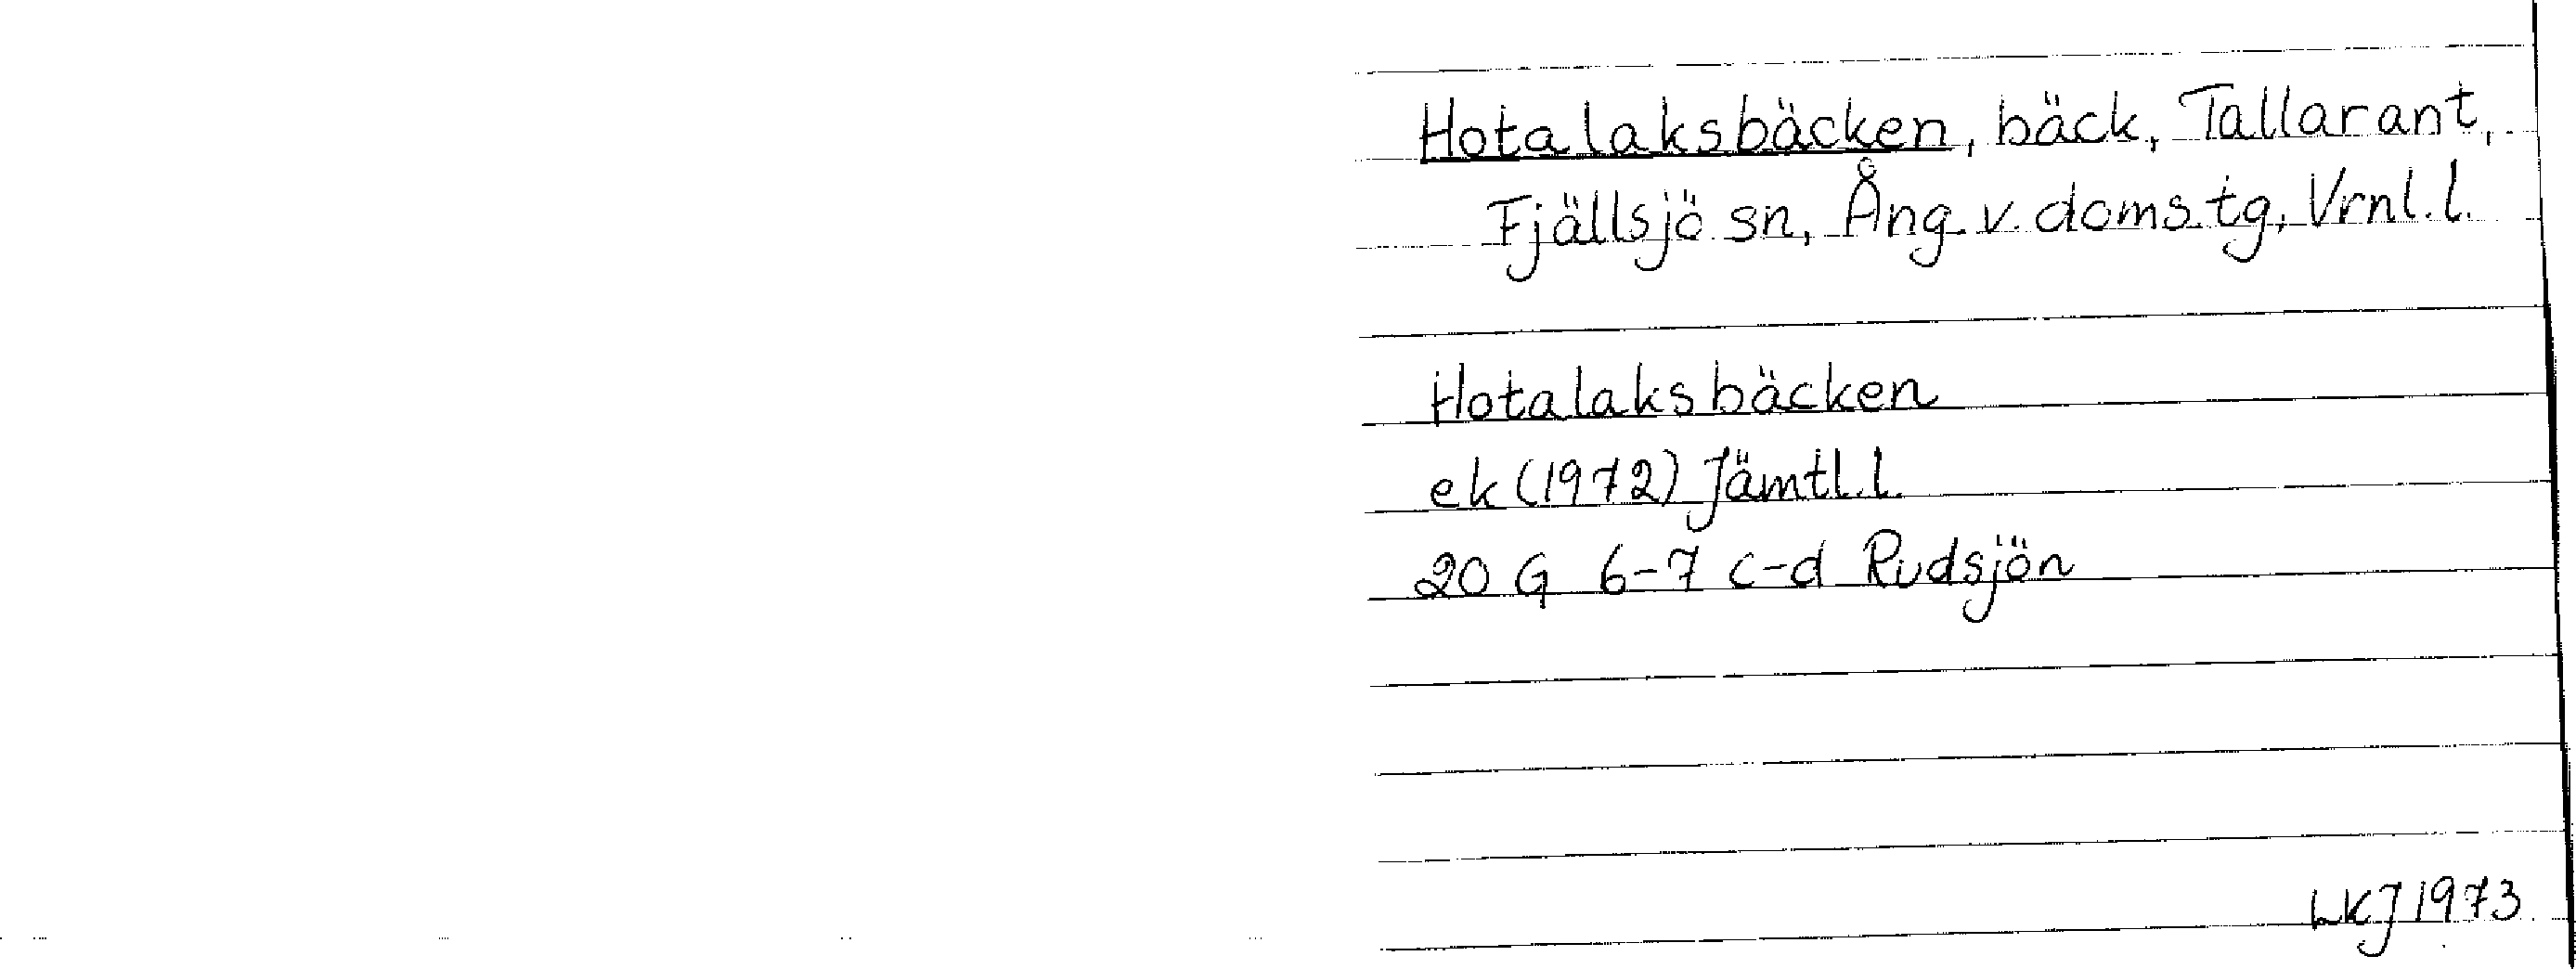 Hotalaksbäcken, bäck, Tallarant,
Fjällsjö sn, Ång. v. doms.tg, Vrnl. l.
Hotalaksbäcken
ek (1972) Jämtl. l.
20 G 6-7 c-d Rudsjön
LKJ 1973